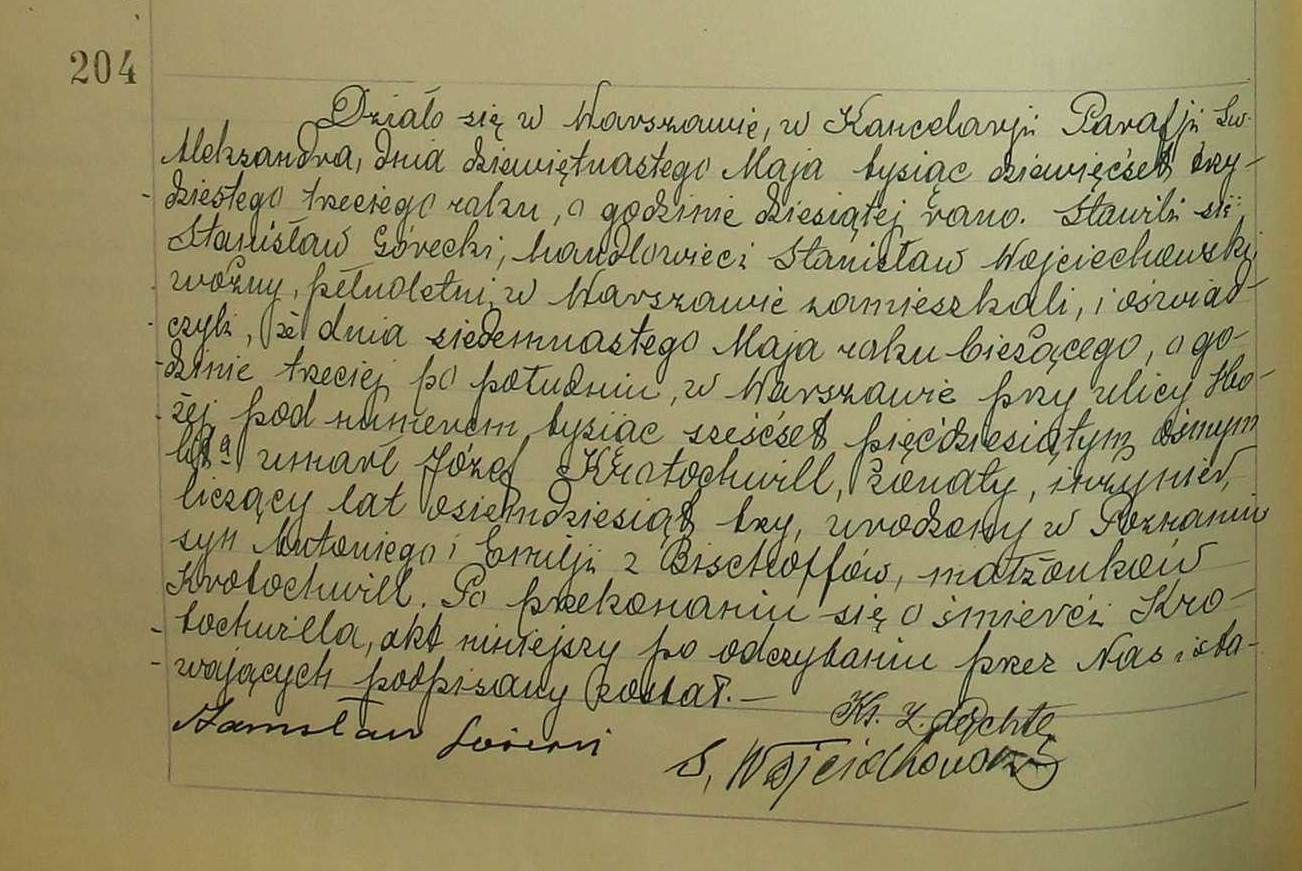 204
Działo się w Warszawie, w Kancelarji Parafji Św.
Aleksandra, dnia dziewiętnastego Maja tysiąc dziewięćset trzy-
dziestego trzeciego roku, o godzinie dziesiątej rano. Stawili się:
Stanisław Górecki, handlowiec i Stanisław Wojciechowski,
woźny, pełnoletni, w Warszawie zamieszkali, i oświad-
czyli, że dnia siedemnastego Maja roku bieżącego, o go-
dzinie trzeciej po południu, w Warszawie przy ulicy Ho-
żej pod numerem tysiąc sześćset pięćdziesiątym ósmym
lit. a umarł Józef Krotochwill, żonaty, inżynier,
liczący lat osiemdziesiąt trzy, urodzony w Poznaniu
syn Antoniego i Emilji z Bischoffów, małżonków
Krotochwill. Po przekonaniu się o śmierci Kro-
tochwilla, akt niniejszy po odczytaniu przez Nas i sta-
wających podpisany został. —
Ks. Z.
Stanisław Górecki
S. Wojciechowski